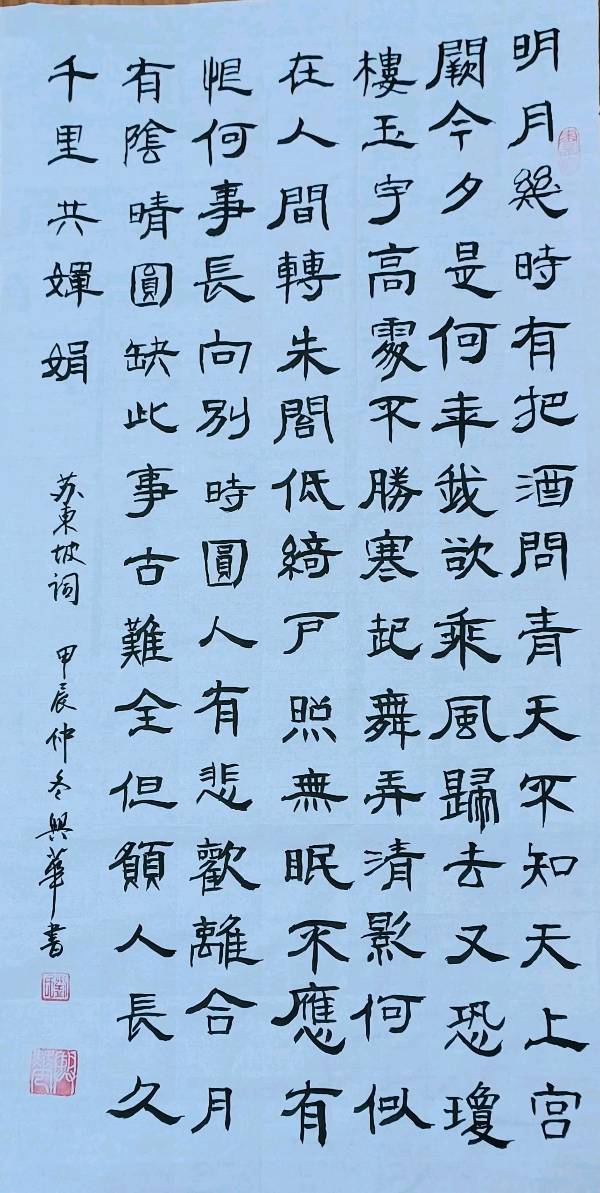 明月幾時有把酒問青天不知天上宮
闕今夕是何年我欲乘風歸去又恐瓊
樓玉宇高處不勝寒起舞弄清影何似
在人間轉朱閣低綺戶照無眠不應有
恨何事長向別時圓人有悲歡離合月
有陰晴圓缺此事古難全但願人長久
千里共嬋娟
苏東坡词 甲辰仲冬興華書